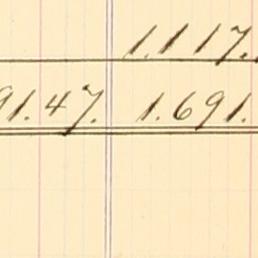 1.117.
91.47. 1.691.